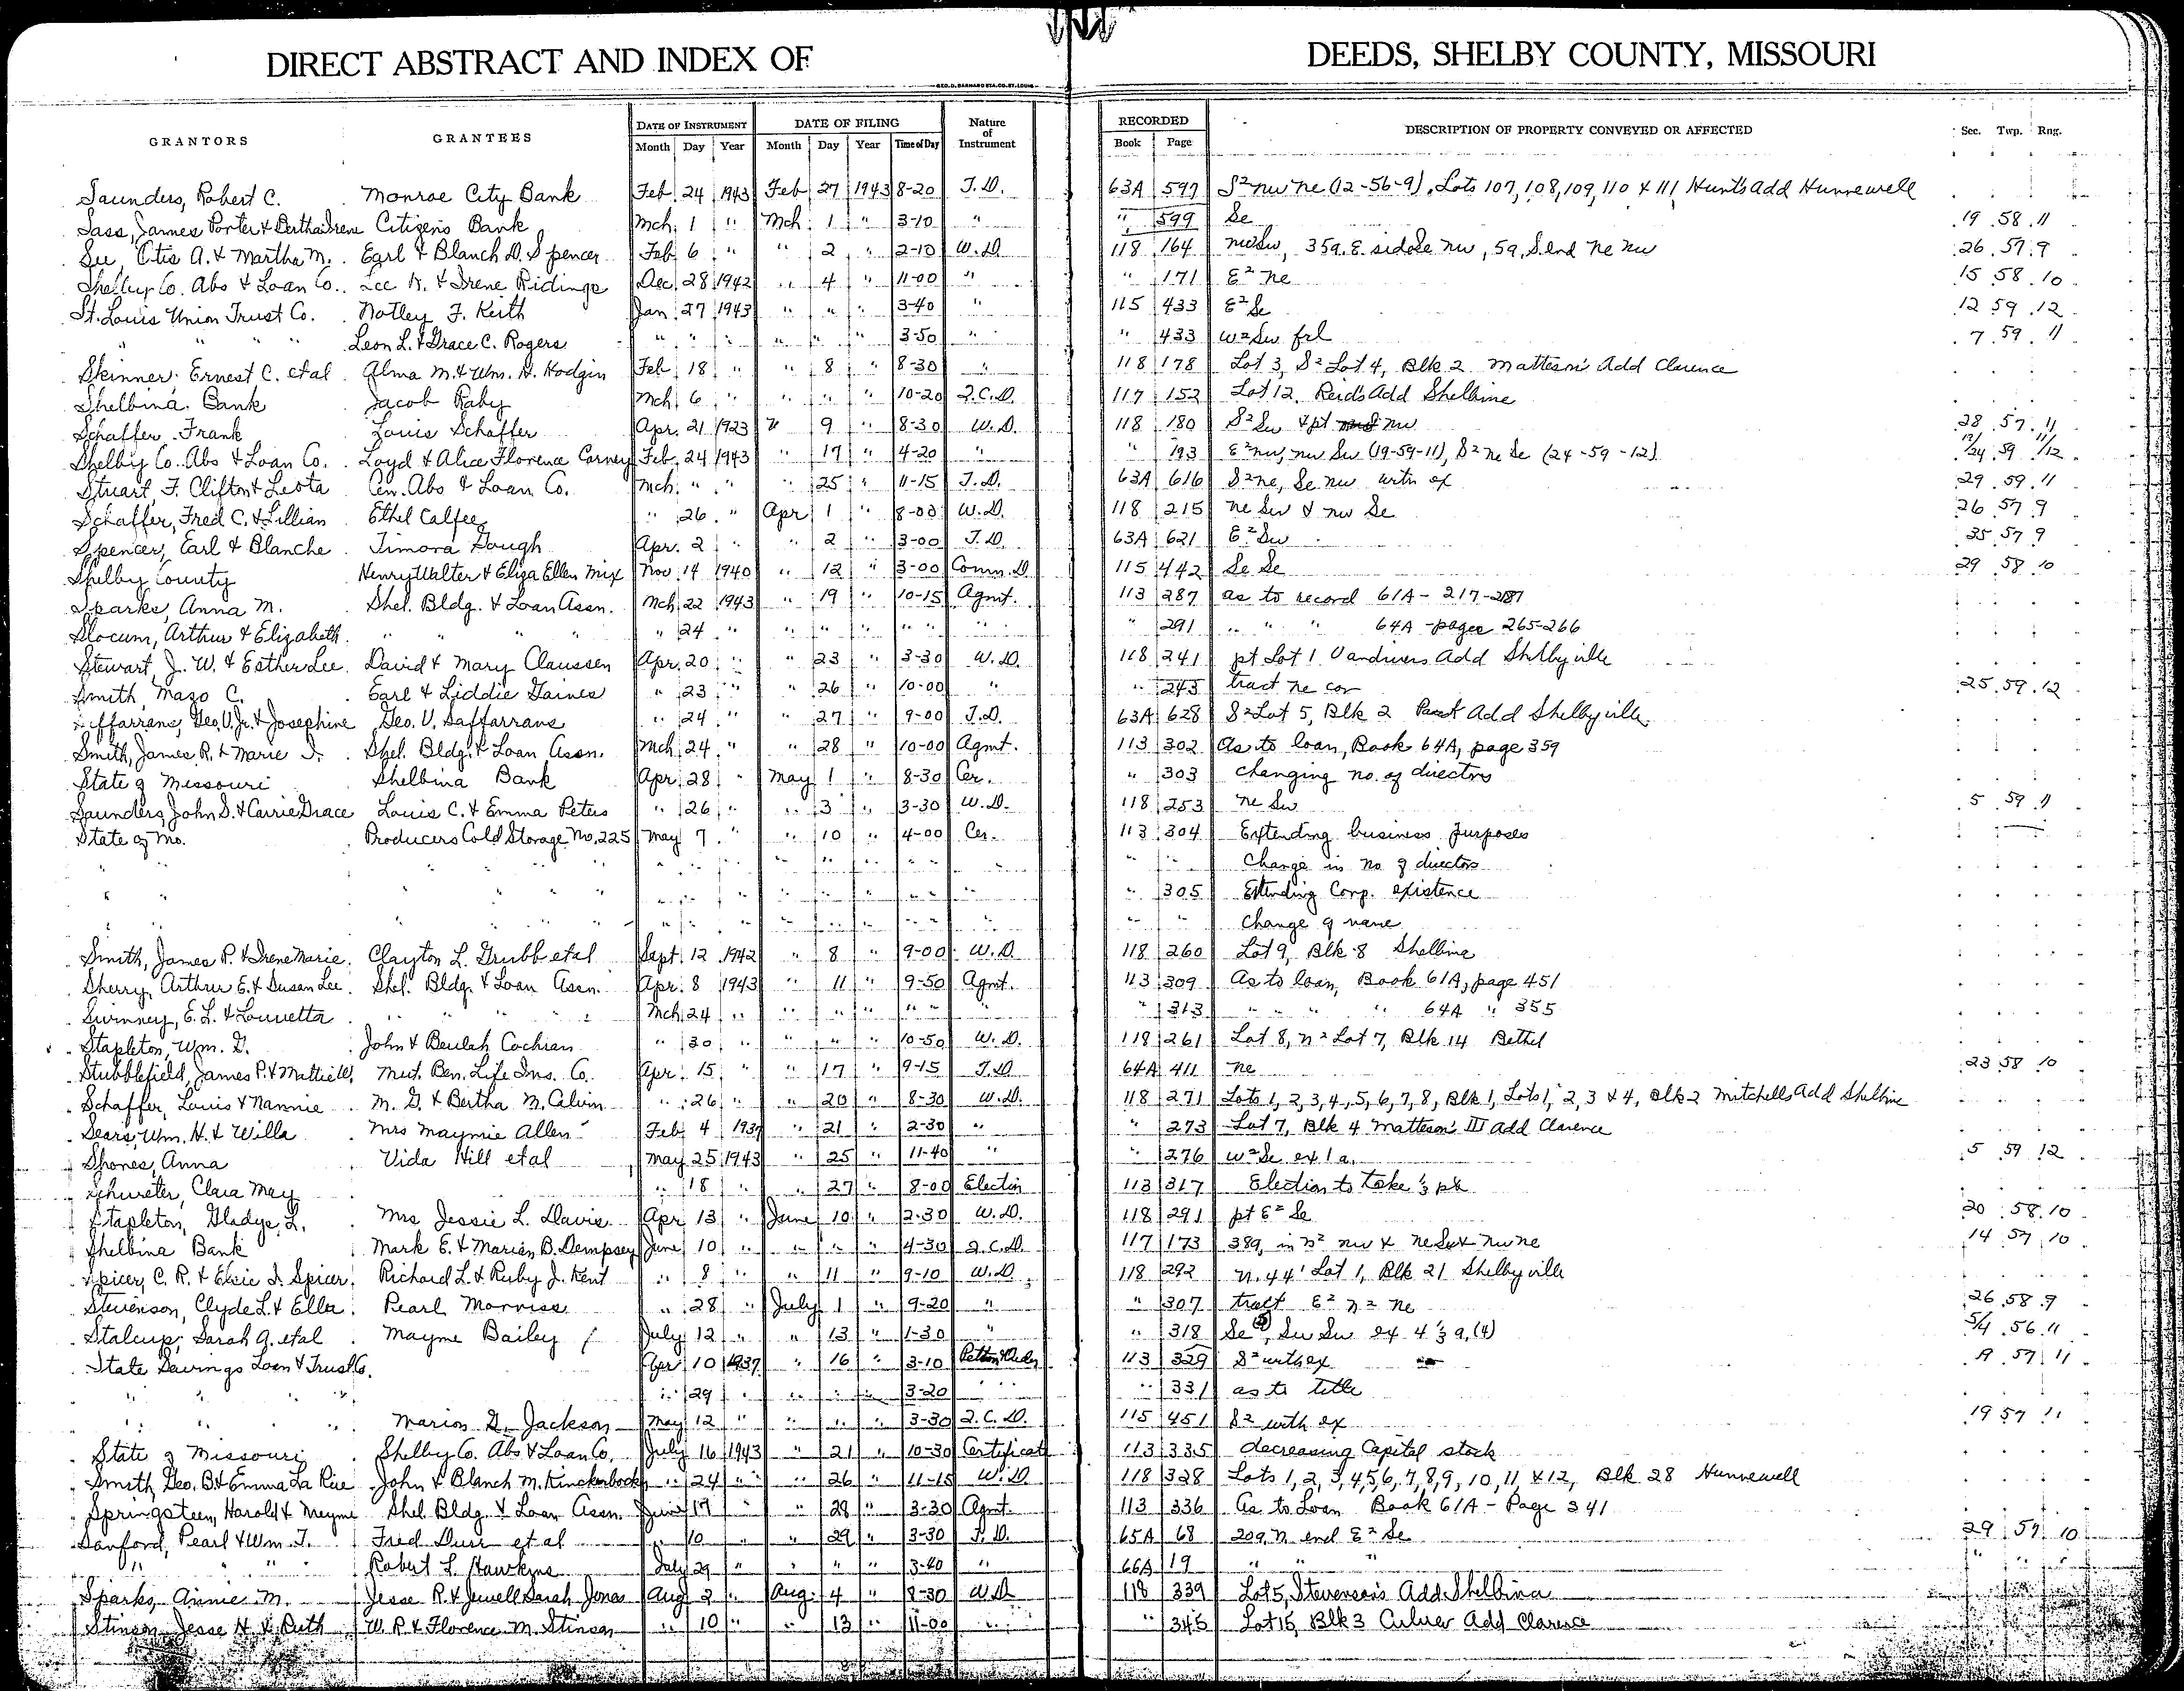 DIRECT ABSTRACT AND INDEX OF DEEDS, SHELBY COUNTY, MISSOURI
GEO. D. BARNARD STA. CO. ST. LOUIS
GRANTORS GRANTEES DATE OF INSTRUMENT Month Day Year DATE OF FILING Month Day Year Time of Day Nature of Instrument RECORDED Book Page DESCRIPTION OF PROPERTY CONVEYED OR AFFECTED Sec. Twp. Rng.
Saunders, Robert C. Monroe City Bank Feb 24 1943 Feb 27 1943 8-20 T.D. 63A 597 S² nw ne (12-56-9), Lots 107, 108, 109, 110 & 111, Hunt's Add Hunnewell
Sass, James Porter & Bertha Irene Citizens Bank Mch 1 " Mch 1 " 3-10 " " 599 Se 19 58 11
See, Otis A. & Martha M. Earl & Blanch D. Spencer Feb 6 " " 2 " 2-10 W.D. 118 164 nw Sw, 35a. E. side Se nw, 5a, S. end ne nw 26 57 9
Shelby Co. Abs & Loan Co. Lee N. & Irene Ridings Dec 28 1942 " 4 " 11-00 " " 171 E² ne 15 58 10
St. Louis Union Trust Co. Notley F. Keith Jan 27 1943 " " " 3-40 " 115 433 E² Se 12 59 12
" " " " Leon L. & Grace C. Rogers " " " " " " 3-50 " " 433 W² Sw frl 7 59 11
Skinner, Ernest C. etal Alma M. & Wm. H. Hodgin Feb 18 " " 8 " 8-30 " 118 178 Lot 3, S² Lot 4, Blk 2 Matteson's Add Clarence
Shelbina Bank Jacob Raby Mch 6 " " " " 10-20 Q.C.D. 117 152 Lot 12, Reid's Add Shelbina
Schaffer, Frank Louis Schaffer Apr. 21 1923 " 9 " 8-30 W.D. 118 180 S² Sw & pt nw 28 57 11
Shelby Co. Abs & Loan Co. Loyd & Alice Florence Carney Feb. 24 1943 " 17 " 4-20 " " 193 E² nw, nw Sw (19-59-11), S² ne Se (24-59-12) 19/24 59 11/12
Stuart, F. Clifton & Leota Cen. Abs & Loan Co. Mch " " " 25 " 11-15 T.D. 63A 616 S² ne, Se nw with ex 29 59 11
Schaffer, Fred C. & Lillian Ethel Calfee " 26 " Apr 1 " 8-00 W.D. 118 215 ne Sw & nw Se 26 57 9
Spencer, Earl & Blanche Timora Gough Apr. 2 " " 2 " 3-00 T.D. 63A 621 E² Sw 35 57 9
Shelby County Henry Walter & Eliza Ellen Mix Nov 14 1940 " 12 " 3-00 Comm. D. 115 442 Se Se 29 58 10
Sparks, Anna M. Shel. Bldg. & Loan Assn. Mch 22 1943 " 19 " 10-15 Agmt. 113 287 as to record 61A - 217-287
Slocum, Arthur & Elizabeth " " " " " 24 " " " " " " " " 291 " " " 64A - pages 265-266
Stewart, J. W. & Esther Lee David & Mary Claussen Apr. 20 " " 23 " 3-30 W.D. 118 241 pt Lot 1 Vandivers Add Shelbyville
Smith, Mazo C. Earl & Liddie Gaines " 23 " " 26 " 10-00 " " 243 tract ne cor 25 59 12
Saffarrans, Geo. V. Jr. & Josephine Geo. V. Saffarrans " 24 " " 27 " 9-00 T.D. 63A 628 S² Lot 5, Blk 2 Add Shelbyville
Smith, James R. & Marie I. Shel. Bldg. & Loan Assn. Mch 24 " " 28 " 10-00 Agmt. 113 302 As to loan, Book 64A, page 359
State of Missouri Shelbina Bank Apr 28 " May 1 " 8-30 Cer. " 303 changing no. of directors
Saunders, John S. & Carrie Grace Louis C. & Emma Peters " 26 " " 3 " 3-30 W.D. 118 253 ne Sw 5 59 11
State of Mo. Producers Cold Storage No. 225 May 7 " " 10 " 4-00 Cer. 113 304 Extending business purposes
" " " " " " " " " " " " " " Change in no of directors
" " " " " " " " " " " " " 305 Extending Corp. existence
" " " " " " " " " " " " " " Change of name
Smith, James P. & Irene Marie Clayton L. Grubb etal Sept. 12 1942 " 8 " 9-00 W.D. 118 260 Lot 9, Blk 8 Shelbina
Sherry, Arthur E. & Susan Lee Shel. Bldg. & Loan Assn. Apr. 8 1943 " 11 " 9-50 Agmt. 113 309 As to loan, Book 61A, page 451
Swinney, E. L. & Louvetta " " " " Mch 24 " " " " " " " " 313 " " " " 64A " 355
Stapleton, Wm. G. John & Beulah Cochran " 30 " " " " 10-50 W.D. 118 261 Lot 8, n² Lot 7, Blk 14 Bethel
Stubblefield, James P. & Mattie W. Mut. Ben. Life Ins. Co. Apr. 15 " " 17 " 9-15 T.D. 64A 411 ne 23 58 10
Schaffer, Louis & Nannie M. G. & Bertha M. Calvin " 26 " " 20 " 8-30 W.D. 118 271 Lots 1, 2, 3, 4, 5, 6, 7, 8, Blk 1, Lots 1, 2, 3 & 4, Blk 2 Mitchells Add Shelbina
Sears, Wm. H. & Willa Mrs Maymie Allen Feb 4 1937 " 21 " 2-30 " " 273 Lot 7, Blk 4 Matteson's III Add Clarence
Shones, Anna Vida Hill etal May 25 1943 " 25 " 11-40 " " 276 W² Se ex 1 a. 5 59 12
Clara May " 18 " " 27 " 8-00 Election 113 317 Election to take ½ pt
Stapleton, Gladys L. Mrs Jessie L. Davis Apr 13 " June 10 " 2-30 W.D. 118 291 pt E² Se 20 58 10
Shelbina Bank Mark E. & Marian B. Dempsey June 10 " " " " 4-30 Q.C.D. 117 173 38a, in n² nw & ne Se & nw ne 14 57 10
Spicer, C. R. & Elsie I. Spicer Richard L. & Ruby J. Kent " 8 " " 11 " 9-10 W.D. 118 292 N. 44' Lot 1, Blk 21 Shelbyville
Stevenson, Clyde L. & Ella Pearl Morriss " 28 " July 1 " 9-20 " " 307 tract E² n² ne 26 58 9
Stalcup, Sarah A. etal Mayme Bailey July 12 " " 13 " 1-30 " " 318 Se, Sw Sw ex 4⅓ a, (4) 5/4 56 11
State Savings Loan & Trust Co. Apr 10 1937 " 16 " 3-10 113 329 S² with ex 19 57 11
" " " " " 29 " " " " 3-20 " " 331 as to title
" " " " Marion G. Jackson May 12 " " " " 3-30 Q.C.D. 115 451 S² with ex 19 57 11
State of Missouri Shelby Co. Abs & Loan Co. July 16 1943 " 21 " 10-30 Certificate 113 335 decreasing Capital stock
Smith, Geo. B. & Emma La Rue John & Blanch M. Knickerbocker " 24 " " 26 " 11-15 W.D. 118 328 Lots 1, 2, 3, 4, 5, 6, 7, 8, 9, 10, 11, & 12, Blk 28 Hunnewell
Springsteen, Harold & Mayme Shel. Bldg. & Loan Assn. June 17 " " 28 " 3-30 Agmt. 113 336 As to Loan Book 61A - Page 341
Sanford, Pearl & Wm. T. Fred Durr et al " 10 " " 29 " 3-30 T.D. 65A 68 20a, n end E² Se 29 57 10
" " " " Robert L. Hawkins July 29 " " " " 3-40 " 66A 19 " " " " " "
Sparks, Annie M. Jesse R. & Jewell Sarah Jones Aug 2 " Aug. 4 " 8-30 W.D. 118 339 Lot 5, Stevenson's Add Shelbina
Stinson, Jesse H. & Ruth W. R. & Florence M. Stinson " 10 " " 13 " 11-00 " " 345 Lot 15, Blk 3 Culver Add Clarence